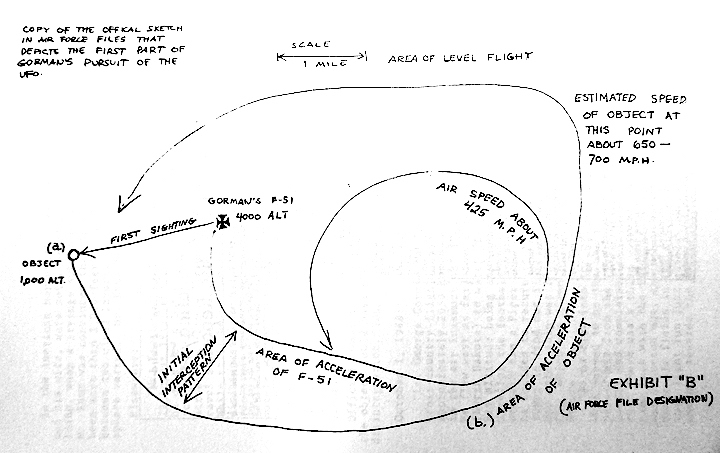 COPY OF THE OFFICAL SKETCH
IN AIR FORCE FILES THAT
DEPICTS THE FIRST PART OF
GORMAN'S PURSUIT OF THE
UFO.
SCALE
1 MILE
AREA OF LEVEL FLIGHT
ESTIMATED SPEED
OF OBJECT AT
THIS POINT
ABOUT 650 —
700 M.P.H.
AIR SPEED ABOUT
425 M.P.H
GORMAN'S F-51
4000 ALT
FIRST SIGHTING
(a)
OBJECT
1,000 ALT.
INITIAL
INTERCEPTION
PATTERN
AREA OF ACCELERATION
OF F-51
(b.) AREA OF ACCELERATION
OF OBJECT
EXHIBIT "B"
(AIR FORCE FILE DESIGNATION)